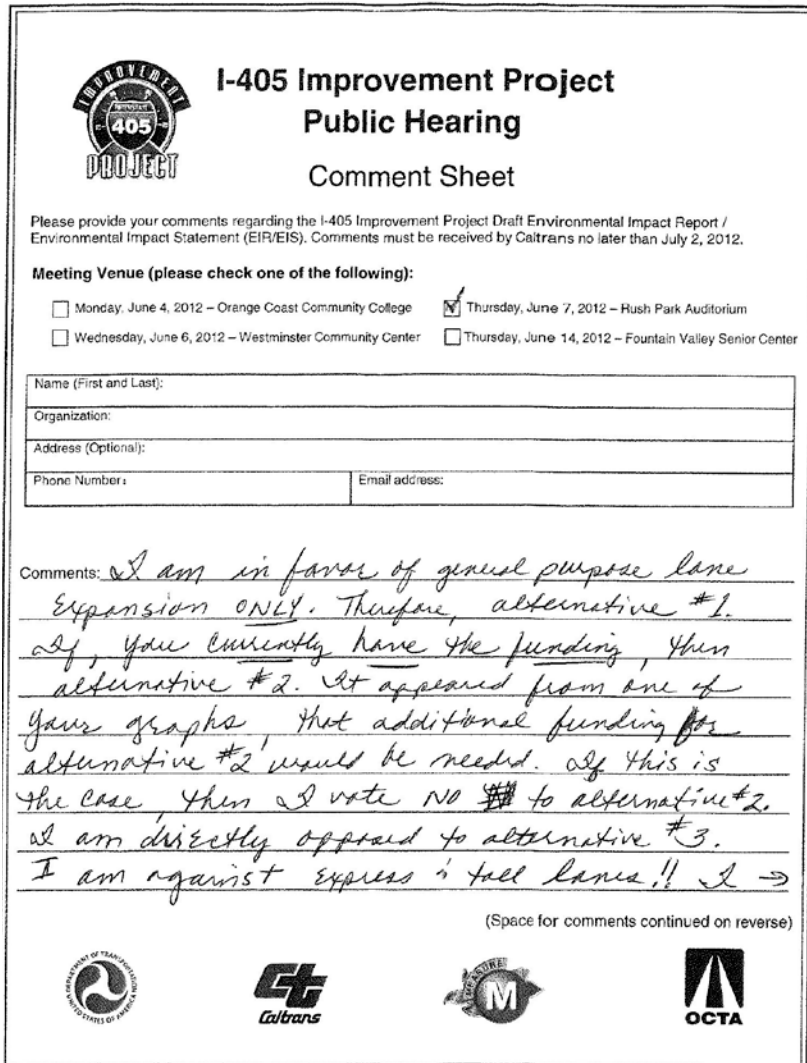 IMPROVEMENT
INTERSTATE
405
PROJECT
I-405 Improvement Project
Public Hearing
Comment Sheet
Please provide your comments regarding the I-405 Improvement Project Draft Environmental Impact Report /
Environmental Impact Statement (EIR/EIS). Comments must be received by Caltrans no later than July 2, 2012.
Meeting Venue (please check one of the following):
Monday, June 4, 2012 – Orange Coast Community College
Thursday, June 7, 2012 – Rush Park Auditorium
Wednesday, June 6, 2012 – Westminster Community Center
Thursday, June 14, 2012 – Fountain Valley Senior Center
Name (First and Last):
Organization:
Address (Optional):
Phone Number:
Email address:
Comments: I am in favor of general purpose lane
Expansion ONLY. Therefore, alternative #1.
If, you currently have the funding, then
alternative #2. It appeared from one of
your graphs, that additional funding for
alternative #2 would be needed. If this is
the case, then I vote NO to alternative #2.
I am directly opposed to alternative #3.
I am against Express & toll lanes!! I →
(Space for comments continued on reverse)
DEPARTMENT OF TRANSPORTATION
UNITED STATES OF AMERICA
Ct
Caltrans
MEASURE
M
OCTA